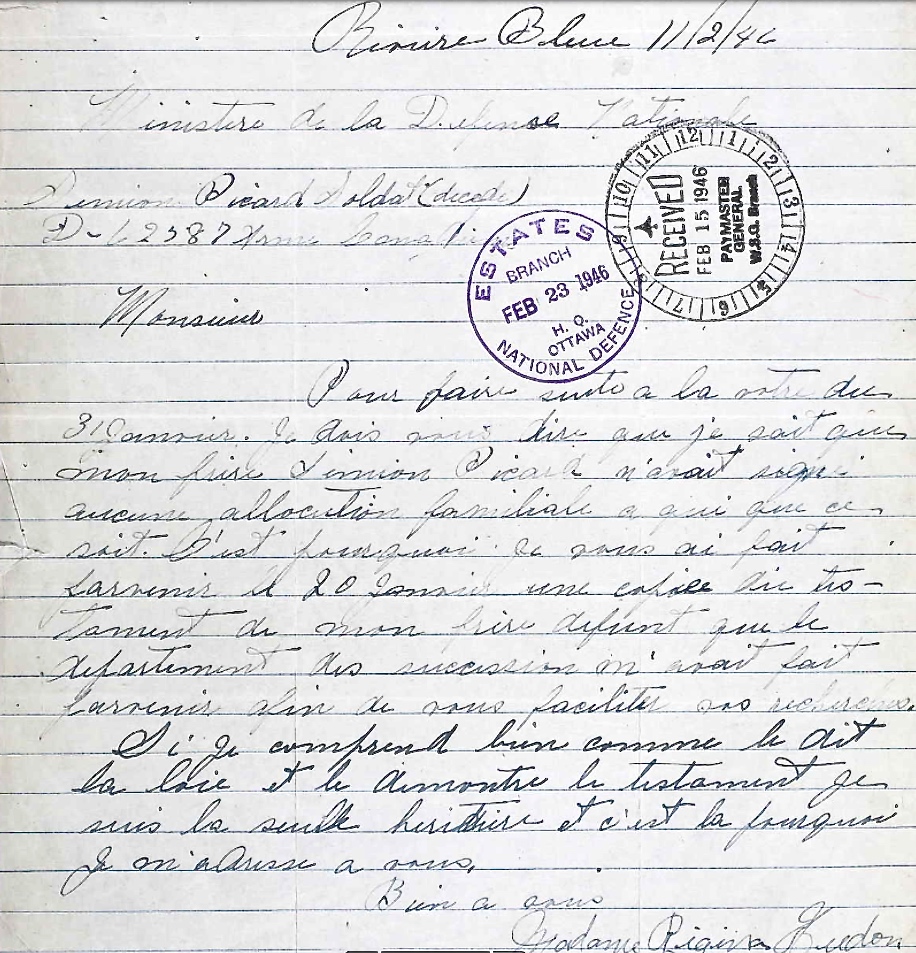 Riviere Bleue 11/2/46
Ministere de la Defense Nationale
Simion Picard Soldat (decede)
D-62587 Arme
ESTATES
BRANCH
FEB 23 1946
H. Q.
OTTAWA
NATIONAL DEFENCE
RECEIVED
FEB 15 1946
PAYMASTER
GENERAL
W.S.G. Branch
Monsieur
Pour faire suite a la votre du
31 Janvier. Je dois vous dire que je sait que
mon frère Simion Picard n'avait signé
aucune allocution familiale a qui que ce
soit. C'est pourquoi je vous ai fait
parvenir le 20 Janvier une copiee du tes-
tament de mon frère defunt que le
departement des succession m'avait fait
parvenir afin de vous faciliter vos recherches.
Si je comprend bien comme le dit
la loie et le demontre le testament je
suis la seulle heritiere et c'est la pourquoi
je m'adresse a vous.
Bien a vous
Madame Regina Hudon